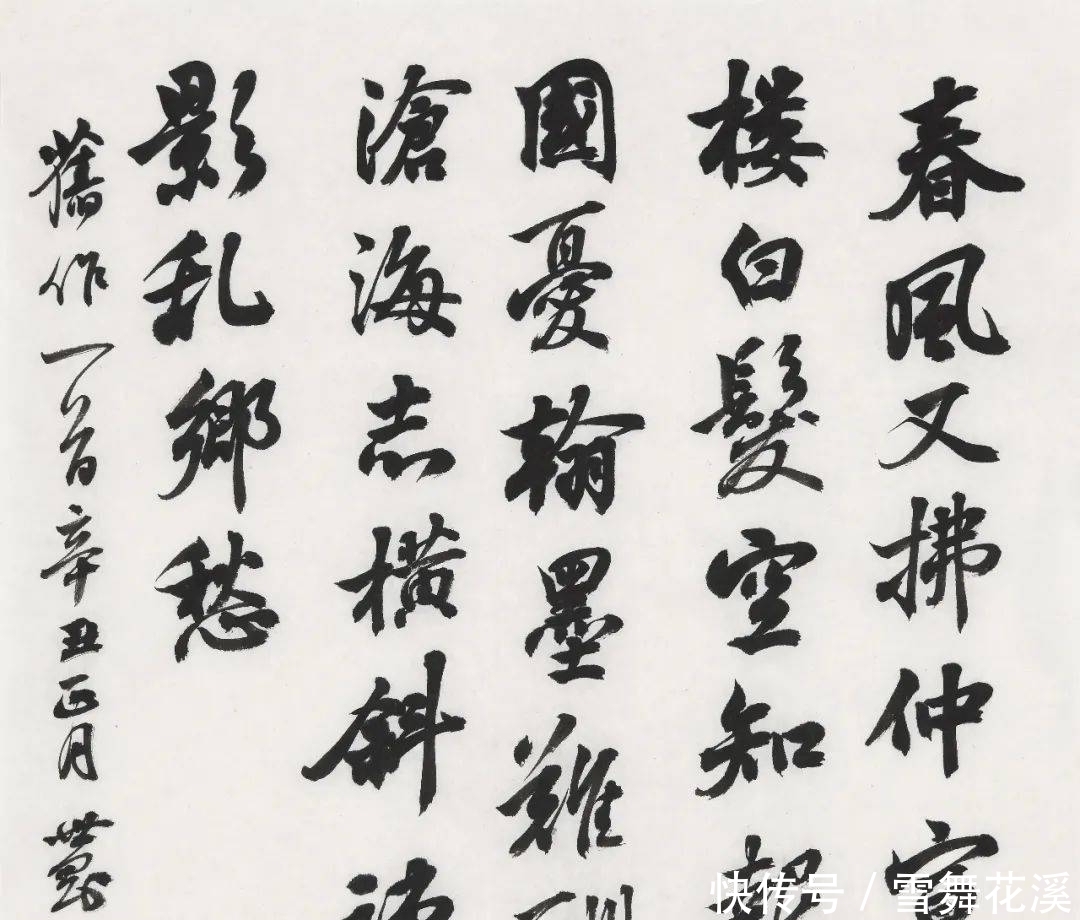 春風又拂仲
楼白髮空知
國憂翰墨難
滄海志橫斜
影乱鄉愁
舊作一首辛丑正月
快传号 / 雪舞花溪